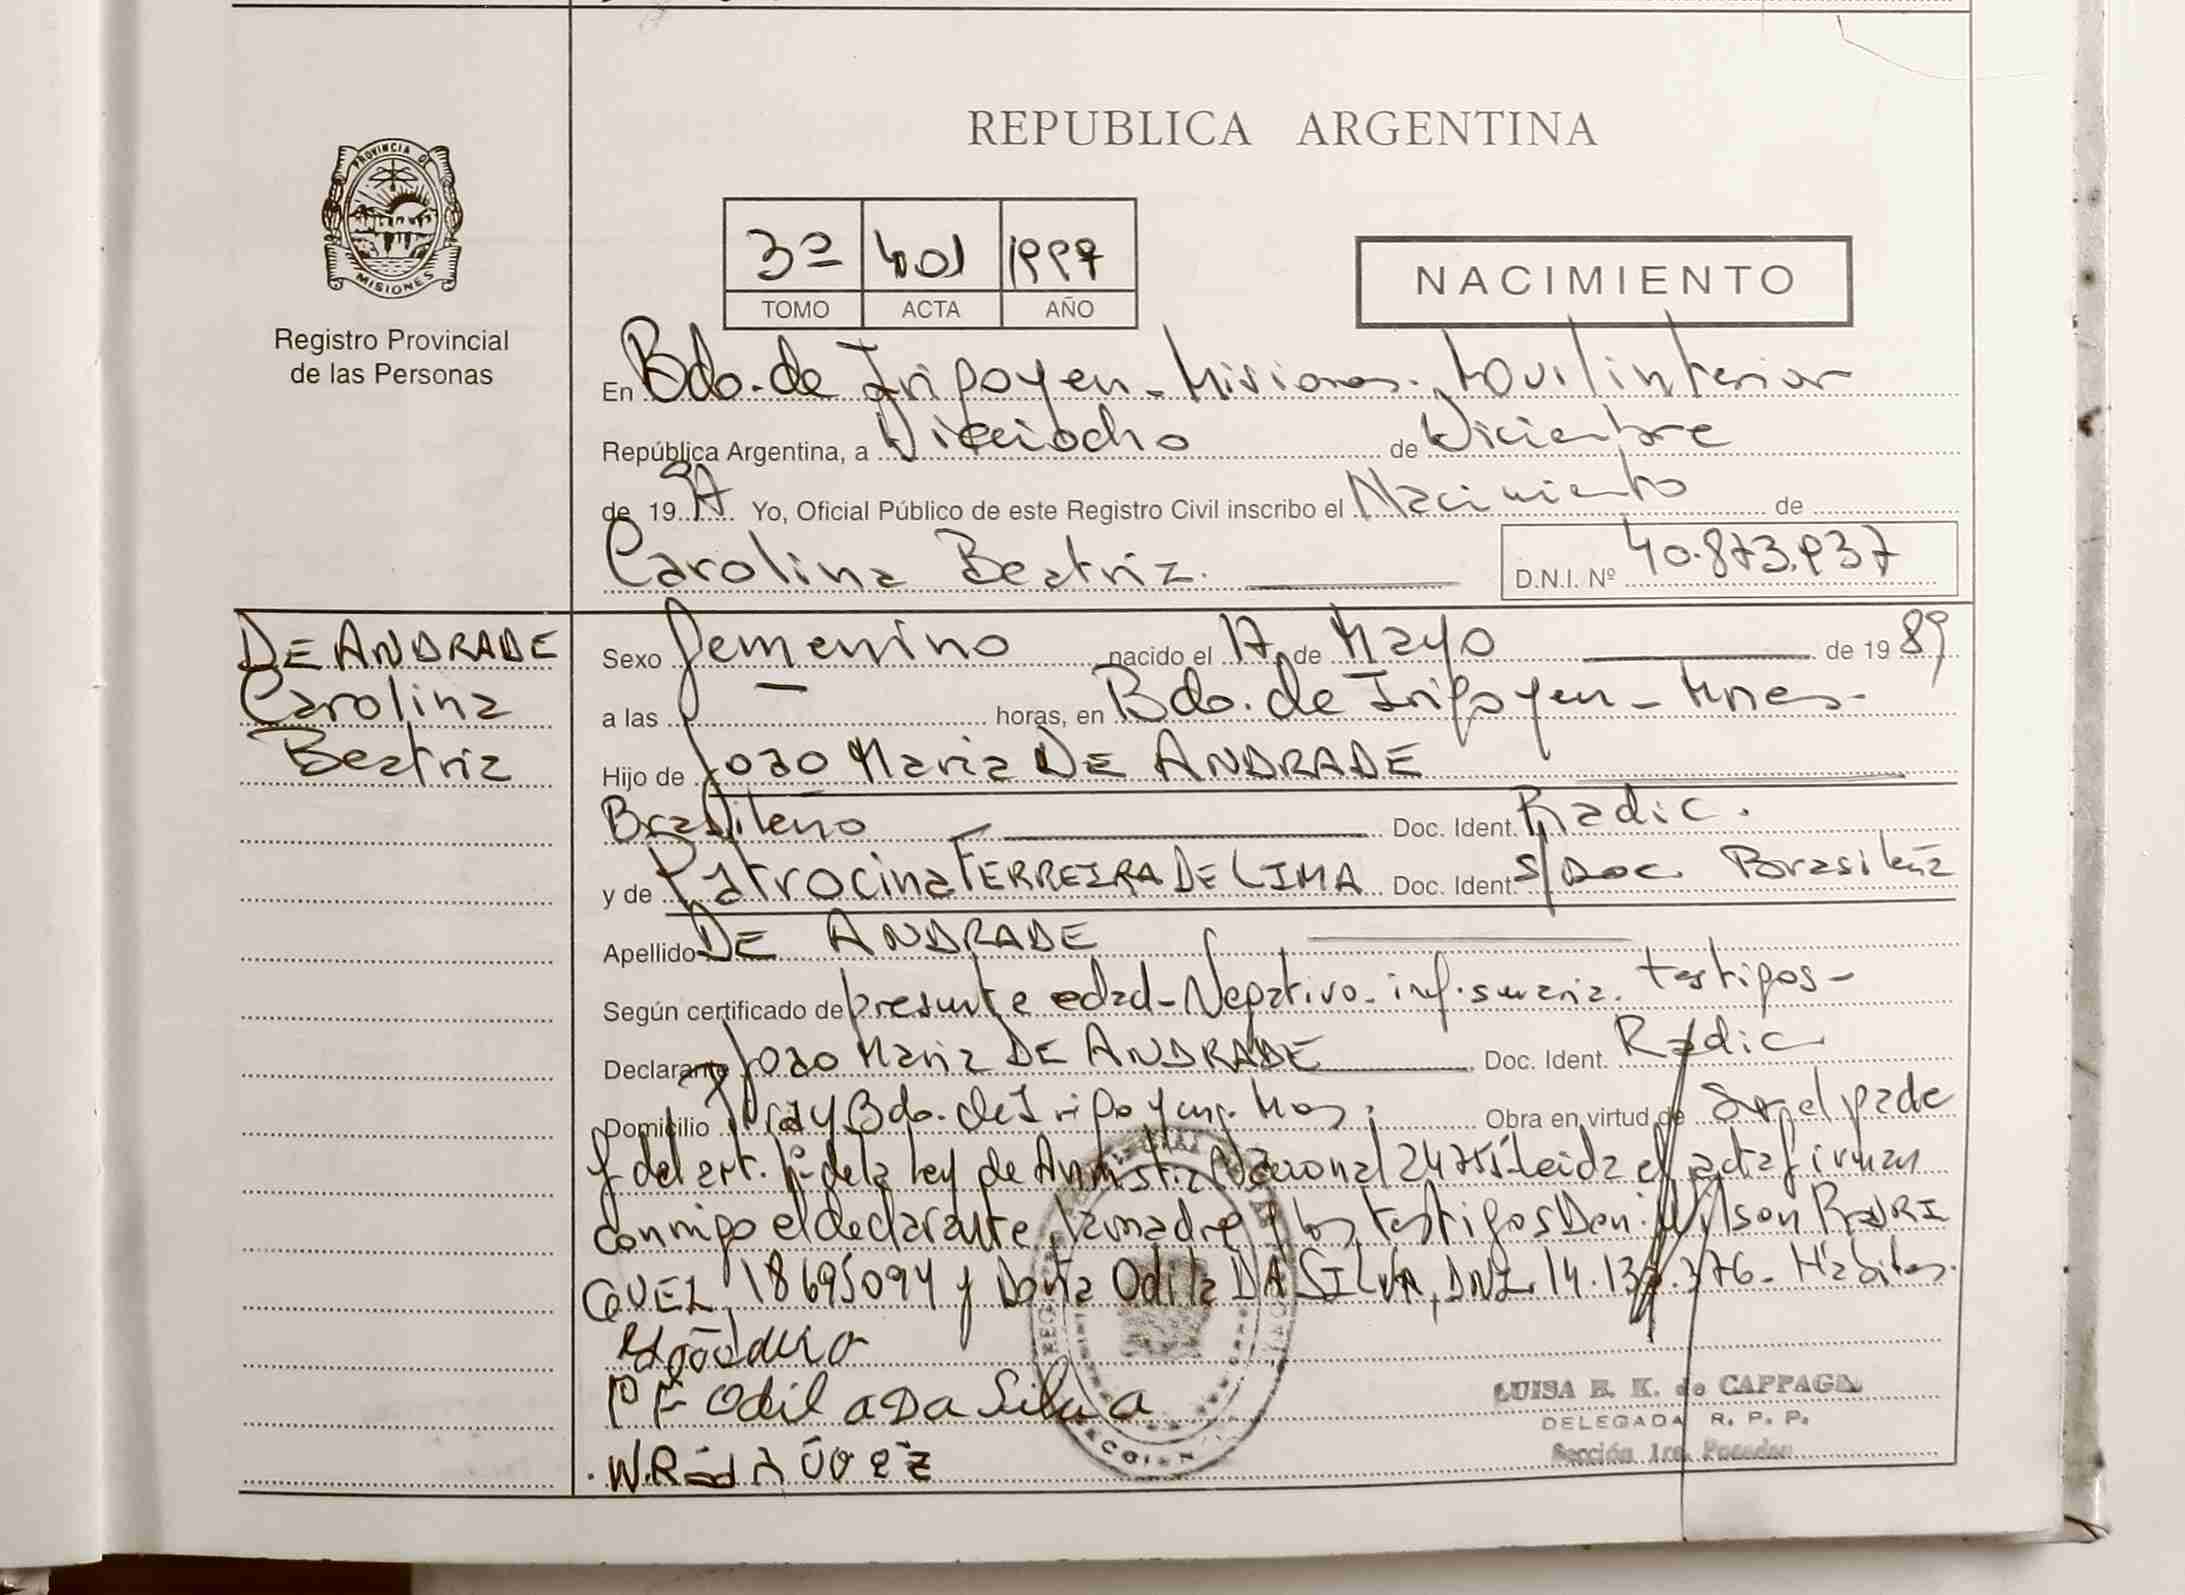 REPUBLICA ARGENTINA
PROVINCIA DE
MISIONES
Registro Provincial
de las Personas
3º 401 1997
TOMO ACTA AÑO
NACIMIENTO
En Bdo. de Irigoyen - Misiones. Movil interior
República Argentina, a Dieciocho de Diciembre
de 1997 Yo, Oficial Público de este Registro Civil inscribo el Nacimiento de
Carolina Beatriz.
D.N.I. Nº 40.873.937
DE ANDRADE
Carolina
Beatriz
Sexo femenino nacido el 17 de Mayo de 1989
a las — horas, en Bdo. de Irigoyen - Mnes-
Hijo de Joao Maria DE ANDRADE
Brasileño Doc. Ident. Radic.
y de Patrocina FERREIRA DE LIMA Doc. Ident. S/Doc. Brasileña
Apellido DE ANDRADE
Según certificado de presunta edad - Negativo - inf. sumaria. testigos -
Declarante Joao Maria DE ANDRADE Doc. Ident. Radic
Domicilio Bdo. de Irigoyen. Obra en virtud de
y del art. 1º de la Ley de Amnistia Nacional 24755 Leida el acta firman
conmigo el declarante, la madre y los testigos Don. Wilson RODRI
GUEZ, 18695094 y Doña Odila DA SILVA, DNI. 14.137.376-
Odila Da Silva
LUISA E. K. de CAPPAGLI
DELEGADA R. P. P.
Sección 1ra. Posadas